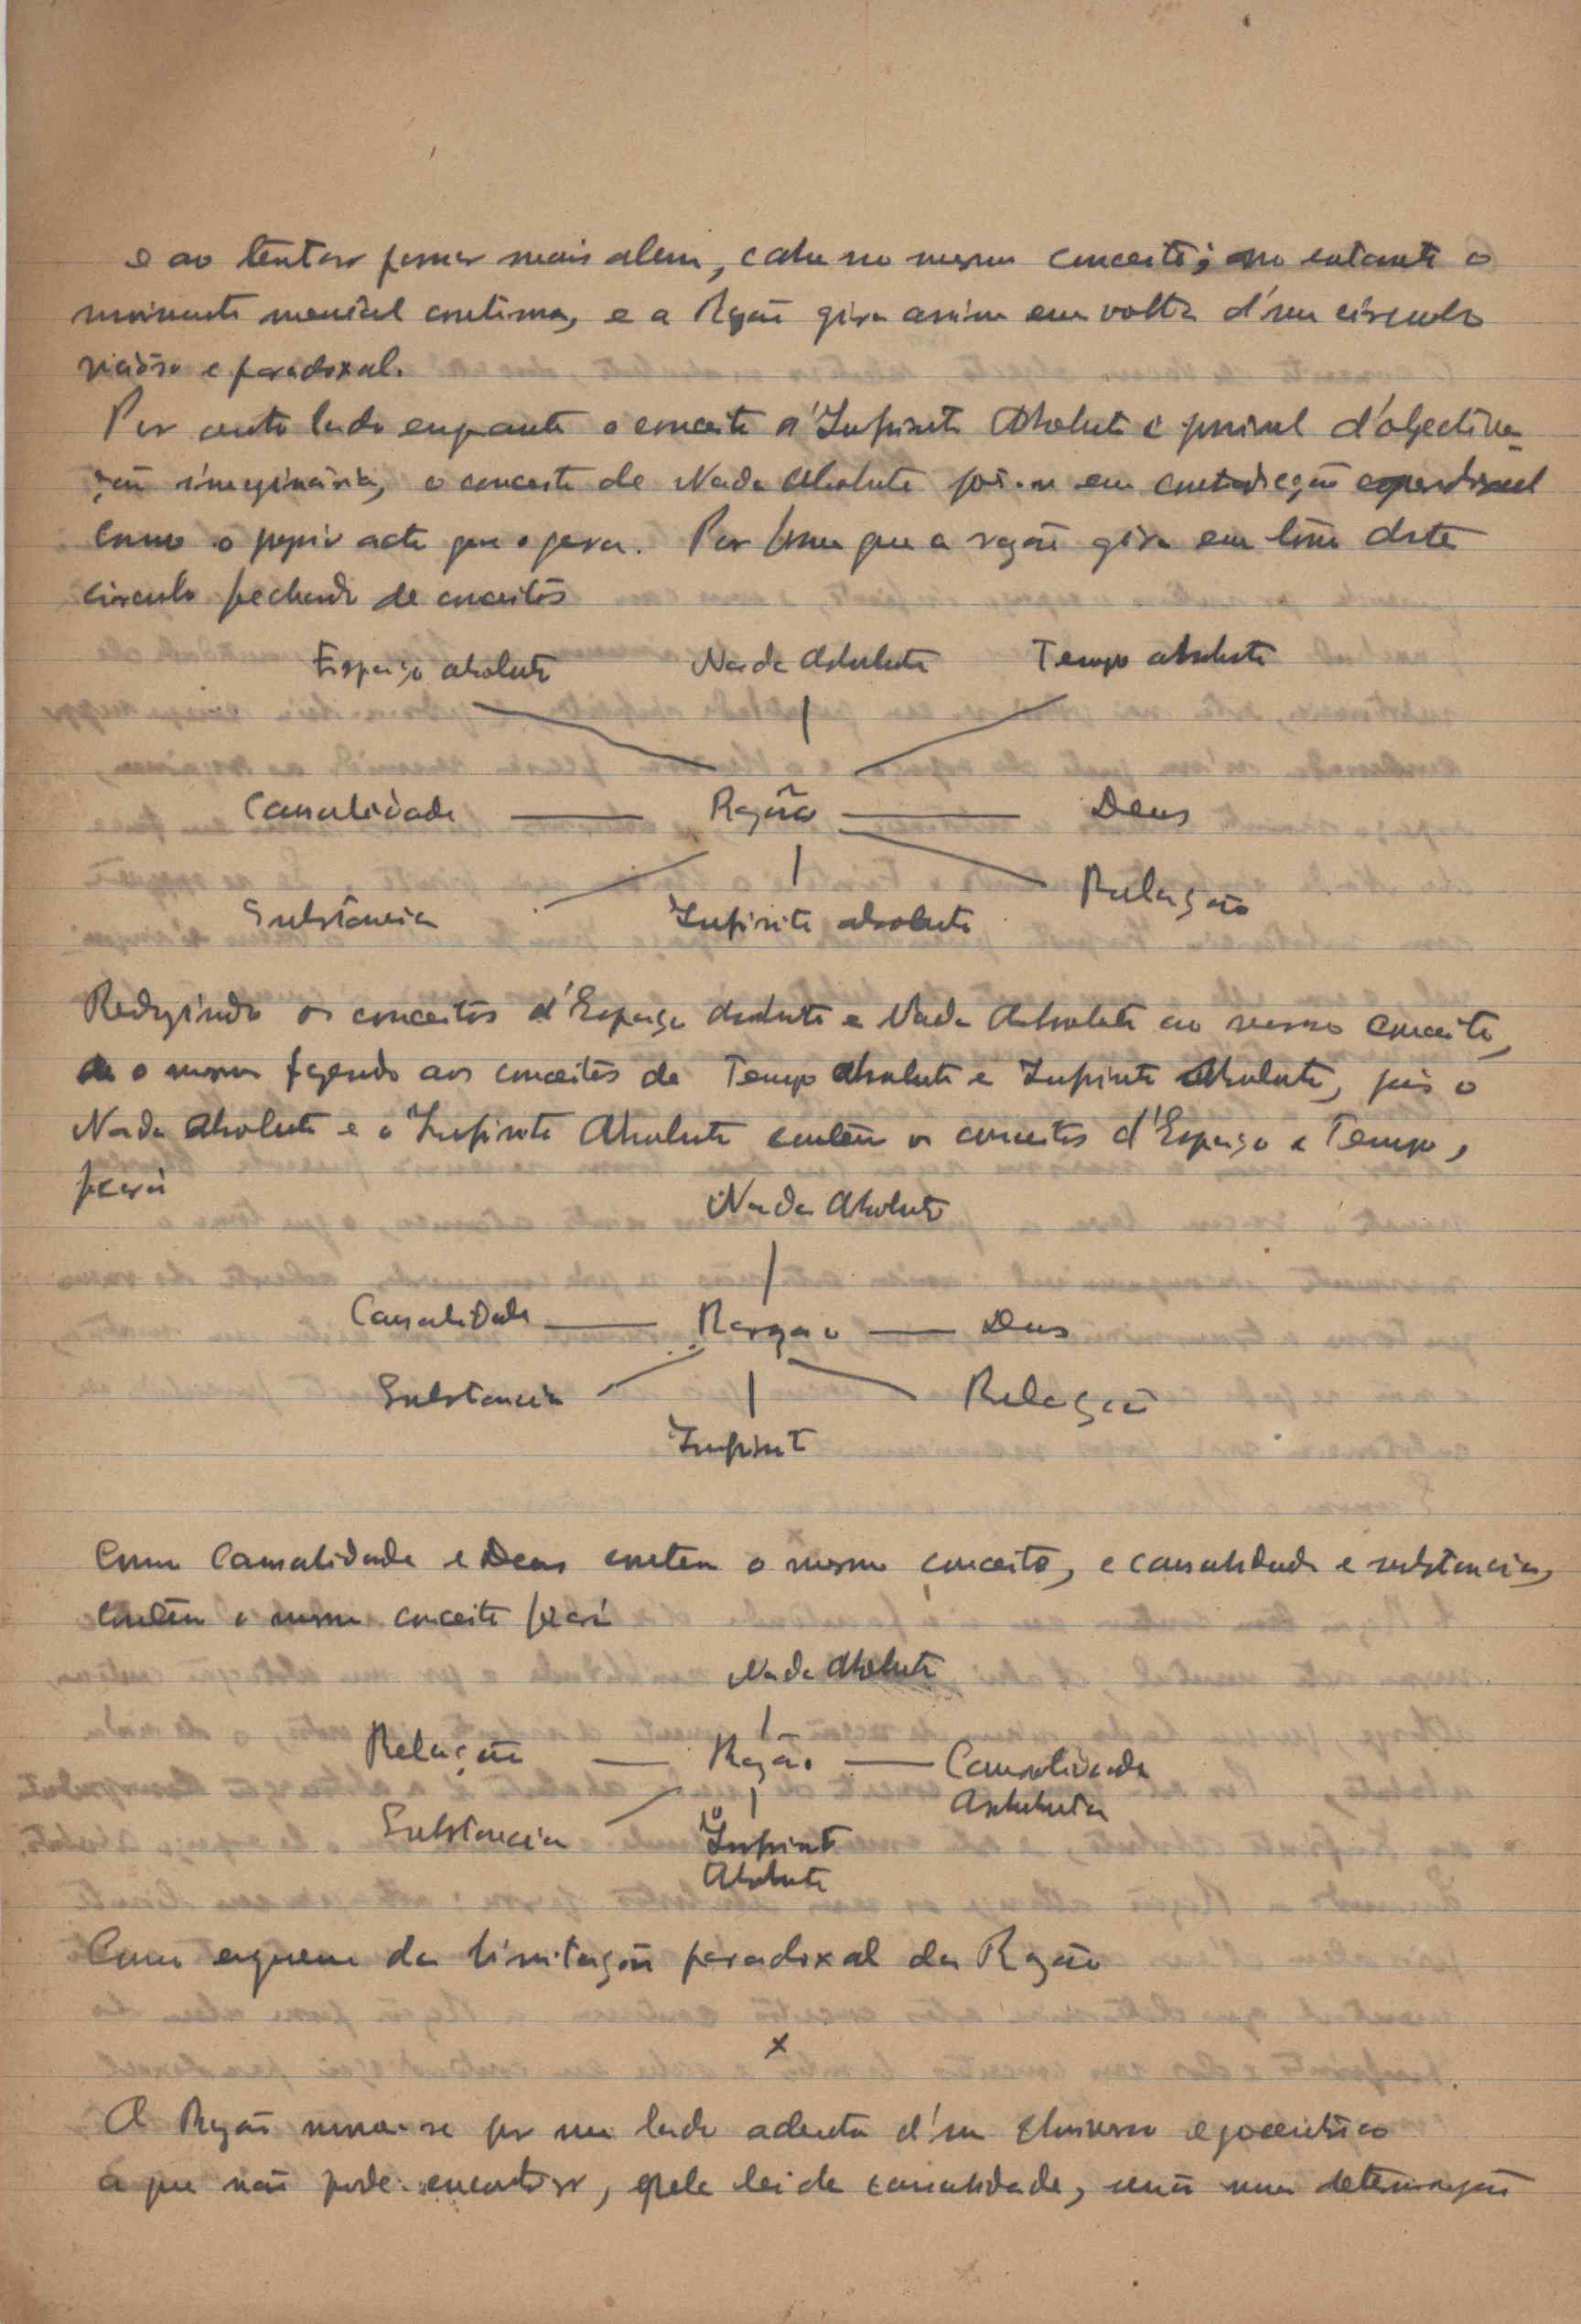 e ao tentar passar mais alem, cahe no mesmo conceito; no entanto o
movimento mental continua, e a Razão gira assim em volta d'um circulo
vicioso e paradoxal.
Por outro lado enquanto o conceito d'Infinito Absoluto é possivel d'objectiva-
ção imaginária, o conceito de Nada Absoluto põe-se em contradicção
como o proprio acto que o gera. Por forma que a razão gira em tôrno deste
circulo fechado de conceitos
Espaço absoluto Nada Absoluto Tempo absoluto
Causalidade Razão Deus
Substância Infinito absoluto Relação
Reduzindo os conceitos d'Espaço Absoluto e Nada Absoluto ao mesmo conceito,
e o mesmo fazendo aos conceitos de Tempo Absoluto e Infinito Absoluto, pois o
Nada Absoluto e o Infinito Absoluto contêm os conceitos d'Espaço e Tempo,
ficará
Nada Absoluto
Causalidade Razão Deus
Substancia Relação
Infinito
Como Causalidade e Deus contem o mesmo conceito, e causalidade e substancia,
contêm o mesmo conceito ficará
Nada Absoluto
Relação Razão Causalidade
Absoluta
Substancia Infinito
Absoluto
Como esquema da limitação paradoxal da Razão
x
A Razão move-se por um lado adentro d'um Universo egocentrico
a que não pode encontrar, pela lei de causalidade, senão uma determinação